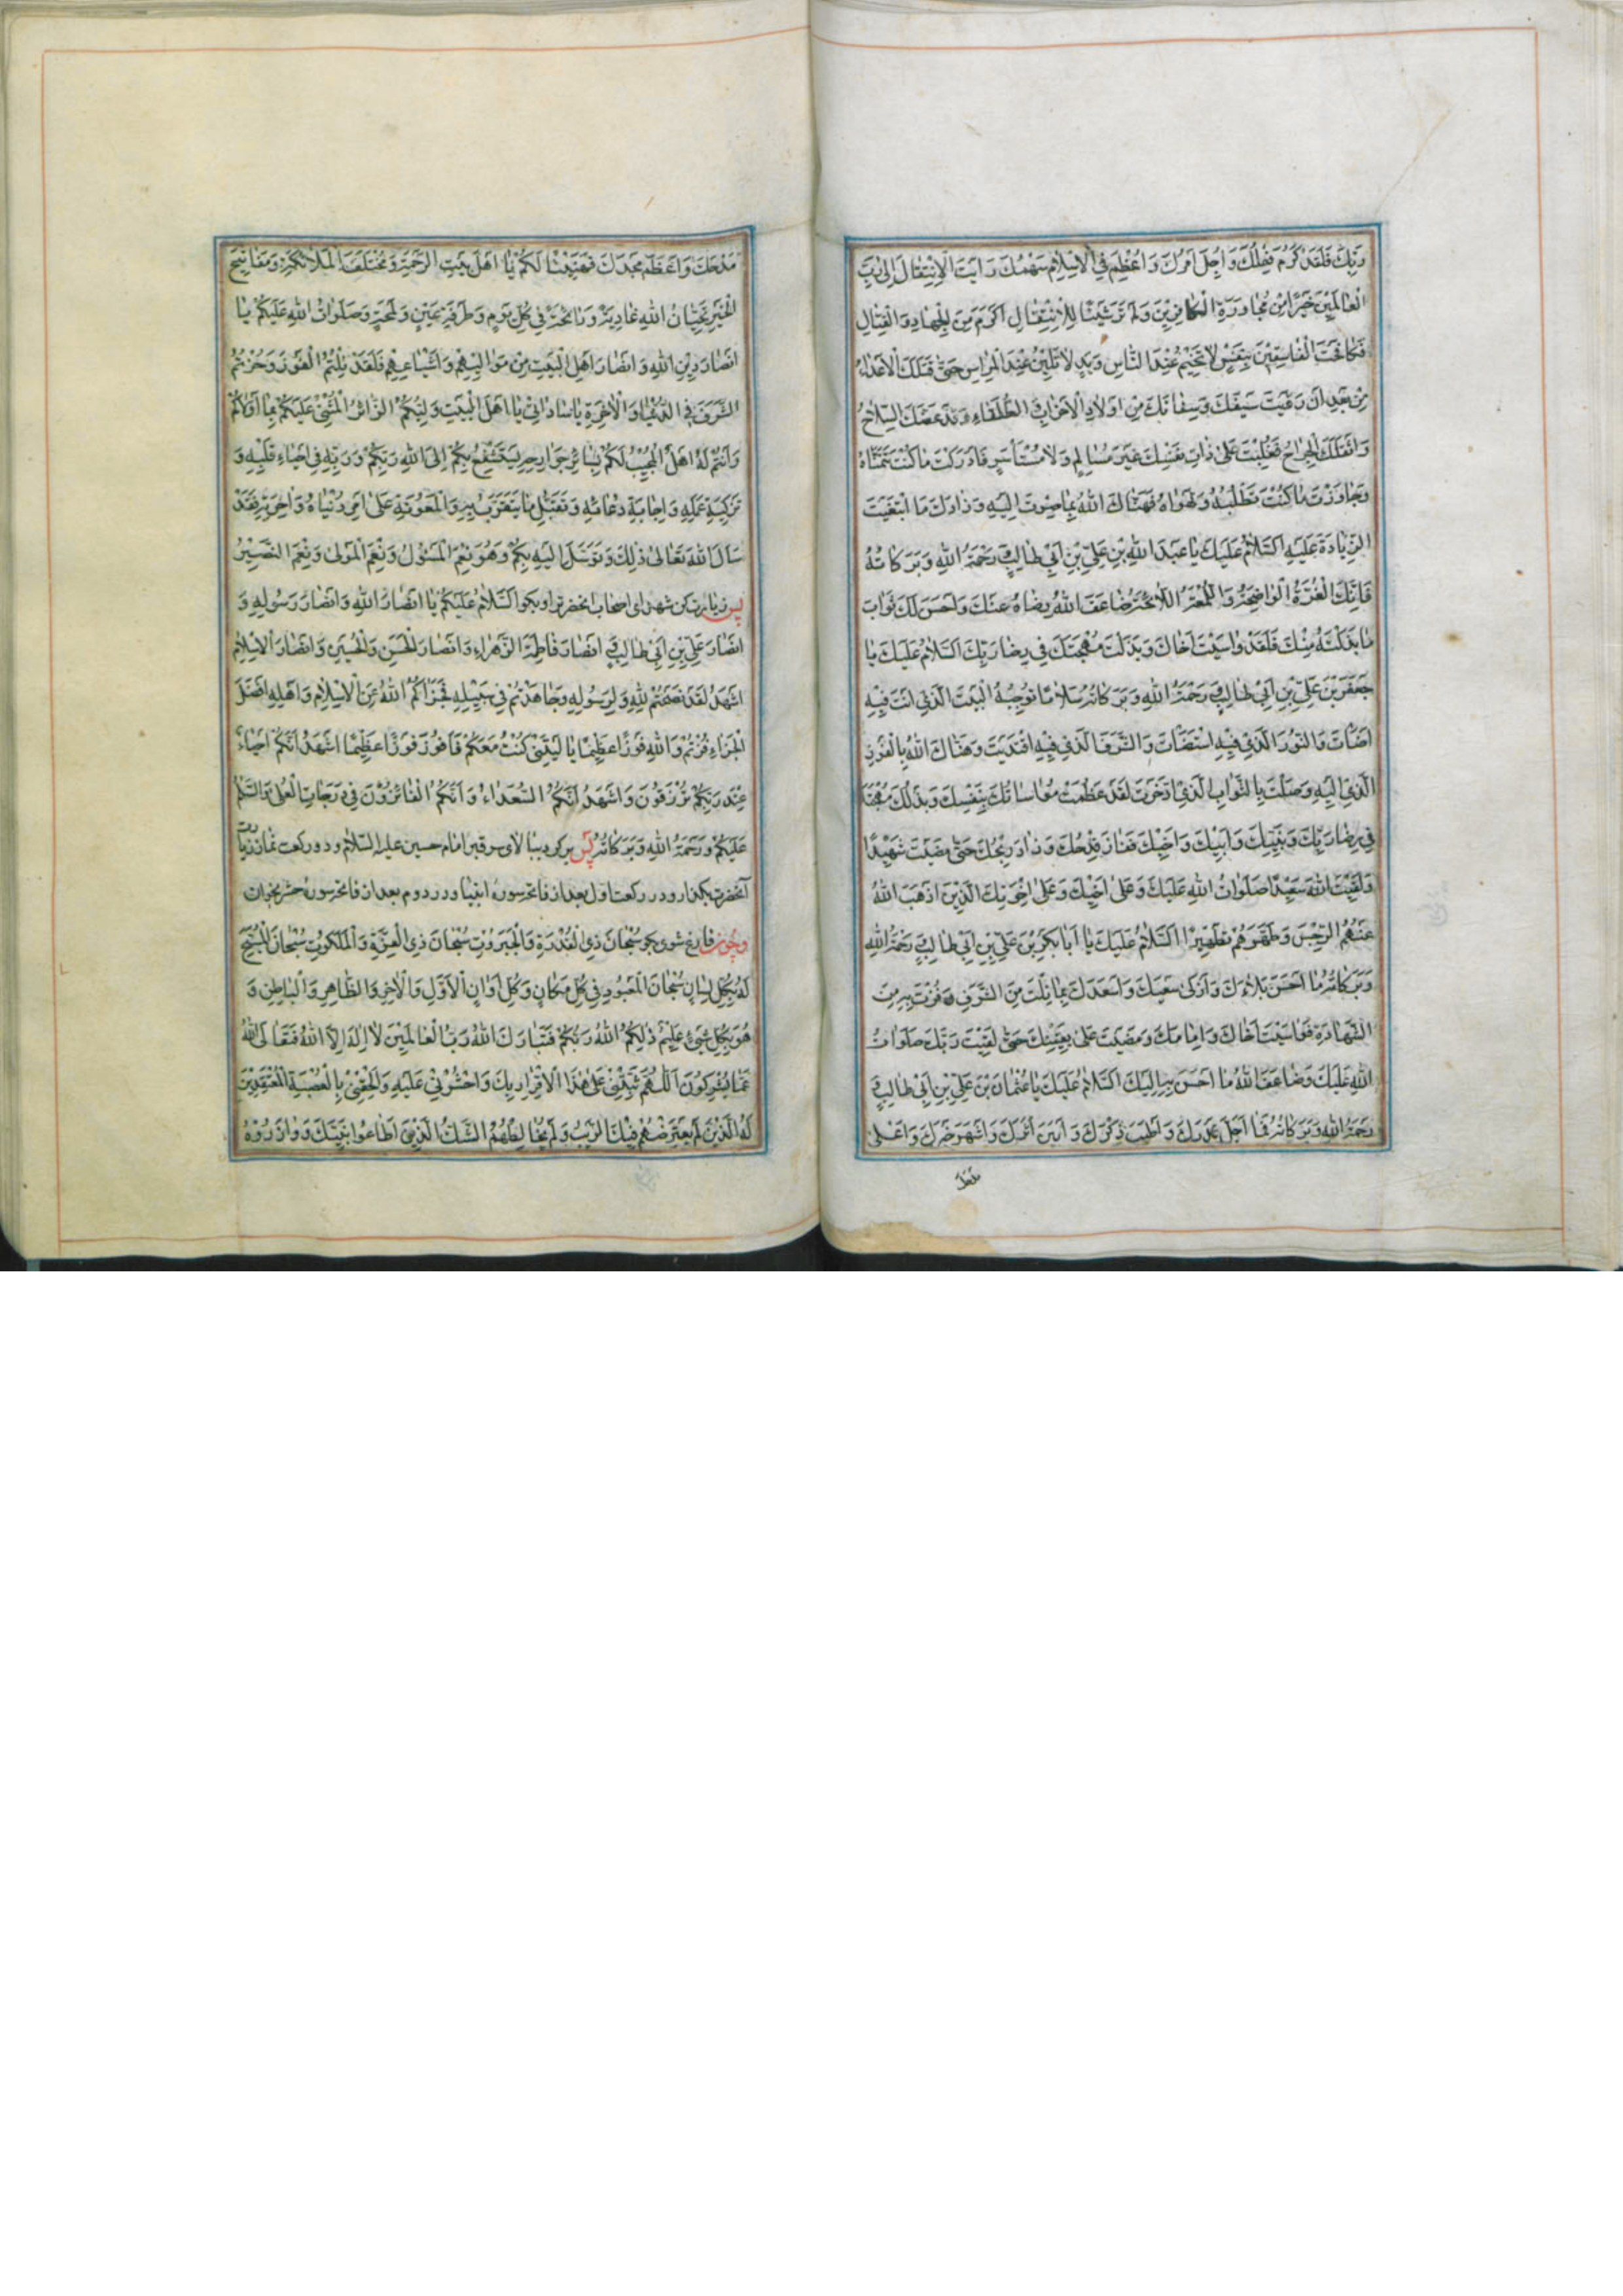 رَبِّكَ فَلَقَدْ كَرُمَ فِعْلُكَ وَاُجِلَّ اَمْرُكَ وَاُعْظِمَ فِي الْاِسْلامِ سَهْمُكَ رَاَيْتَ الْاِنْتِقالَ اِلى رَبِّ
الْعالَمينَ خَيْرًا مِنْ مُجاوَرَةِ الْكافِرينَ وَلَمْ تَرَ شَيْئًا لِلْاِنْتِقالِ اَكْرَمَ مِنَ الْجِهادِ وَالْقِتالِ
فَكافَحْتَ الْفاسِقينَ بِنَفْسٍ لا تَخيمُ عِنْدَ النّاسِ وَيَدٍ لا تَلينُ عِنْدَ الْمِراسِ حَتّى قَتَلَكَ الْاَعْداءُ
مِنْ بَعْدِ اَنْ رَوَّيْتَ سَيْفَكَ وَسِنانَكَ مِنْ اَوْلادِ الْاَحْزابِ وَ الطُّلَقاءِ وَقَدْ عَضَّكَ السِّلاحُ
وَاَثْقَلَكَ الْجِراحُ فَغُلِبْتَ عَلى ذاتِ نَفْسِكَ غَيْرَ مُسالِمٍ وَلا مُسْتَأْسِرٍ فَاَدْرَكْتَ ما كُنْتَ تَتَمَنّاهُ
وَجاوَزْتَ ما كُنْتَ تَطْلُبُهُ وَتَهْواهُ فَهَنّاكَ اللهُ بِما صِرْتَ اِلَيْهِ وَزادَكَ مَا ابْتَغَيْتَ
الزِّيادَةَ عَلَيْهِ اَلسَّلامُ عَلَيْكَ يا عَبْدَ اللهِ بْنِ عَلِيِّ بْنِ اَبي طالِبٍ رَحْمَةُ اللهِ وَبَرَكاتُهُ
فَاِنَّكَ الْغُرَّةُ الْواضِحَةُ وَاللُّمْعَةُ اللّائِحَةُ ضاعَفَ اللهُ رِضاهُ عَنْكَ وَاَحْسَنَ لَكَ ثَوابَ
ما بَذَلْتَهُ مِنْكَ فَلَقَدْ واسَيْتَ اَخاكَ وَبَذَلْتَ مُهْجَتَكَ في رِضا رَبِّكَ اَلسَّلامُ عَلَيْكَ يا
جَعْفَرَ بْنَ عَلِيِّ بْنِ اَبي طالِبٍ رَحْمَةُ اللهِ وَبَرَكاتُهُ سَلامًا تُوجِبُهُ الْبَيْتَ الَّذي اَنْتَ فيهِ
اَضَأْتَ وَالنُّورَ الَّذي فيهِ اسْتَضَأْتَ وَالشَّرَفَ الَّذي فيهِ اقْتَدَيْتَ وَهَنّاكَ اللهُ بِالْفَوْزِ
الَّذي اِلَيْهِ وَصَلْتَ بِالثَّوابِ الَّذِي ادَّخَرْتَ لَقَدْ عَظُمَتْ مُواساتُكَ بِنَفْسِكَ وَبَذْلُكَ مُهْجَتَكَ
في رِضا رَبِّكَ وَنَبِيِّكَ وَاَبيكَ وَاَخيكَ فَفازَ قِدْحُكَ وَزادَ رِبْحُكَ حَتّى مَضَيْتَ شَهيدًا
وَلَقيتَ اللهَ سَعيدًا صَلَواتُ اللهِ عَلَيْكَ وَعَلى اَخيكَ وَعَلى اِخْوَتِكَ الَّذينَ اَذْهَبَ اللهُ
عَنْهُمُ الرِّجْسَ وَطَهَّرَهُمْ تَطْهيرًا اَلسَّلامُ عَلَيْكَ يا اَبا بَكْرِ بْنَ عَلِيِّ بْنِ اَبي طالِبٍ رَحْمَةُ اللهِ
وَبَرَكاتُهُ ما اَحْسَنَ بَلاءَكَ وَاَزْكى سَعْيَكَ وَاَسْعَدَكَ بِما نِلْتَ مِنَ الشَّرَفِ وَفُزْتَ بِهِ مِنَ
الشَّهادَةِ فَواسَيْتَ اَخاكَ وَاِمامَكَ وَمَضَيْتَ عَلى يَقينِكَ حَتّى لَقيتَ رَبَّكَ صَلَواتُ
اللهِ عَلَيْكَ وَضاعَفَ اللهُ ما اَحْسَنَ بِهِ اِلَيْكَ اَلسَّلامُ عَلَيْكَ يا عُثْمانَ بْنَ عَلِيِّ بْنِ اَبي طالِبٍ
رَحْمَةُ اللهِ وَبَرَكاتُهُ فَما اَجَلَّ قَدْرَكَ وَاَطْيَبَ ذِكْرَكَ وَاَبْيَنَ اَثَرَكَ وَاَشْهَرَ خَيْرَكَ وَاَعْلى
مَدْحَكَ وَاَعْظَمَ مَجْدَكَ فَهَنيئًا لَكُمْ يا اَهْلَ بَيْتِ الرَّحْمَةِ وَمُخْتَلَفَ الْمَلائِكَةِ وَمَفاتيحَ
الْخَيْرِ تَحِيّاتُ اللهِ غادِيَةً وَرائِحَةً في كُلِّ يَوْمٍ وَطَرْفَةِ عَيْنٍ وَلَمْحَةٍ وَصَلَواتُ اللهِ عَلَيْكُمْ يا
اَنْصارَ دينِ اللهِ وَاَنْصارَ اَهْلِ الْبَيْتِ مِنْ مَواليهِمْ وَاَشْياعِهِمْ فَلَقَدْ نِلْتُمُ الْفَوْزَ وَحُزْتُمُ
الشَّرَفَ فِي الدُّنْيا وَالْاخِرَةِ يا ساداتي يا اَهْلَ الْبَيْتِ وَلِيُّكُمُ الزّائِرُ الْمُثْني عَلَيْكُمْ بِما اَوْلاكُمْ
وَاَنْتُمْ لَهُ اَهْلٌ الْمُجيبُ لَكُمْ بِسائِرِ جَوارِحِهِ يَسْتَشْفِعُ بِكُمْ اِلَى اللهِ رَبِّكُمْ وَرَبِّهِ في اِحْياءِ قَلْبِهِ وَ
تَزْكِيَةِ عَمَلِهِ وَاِجابَةِ دُعائِهِ وَتَقَبُّلِ ما يَتَقَرَّبُ بِهِ وَالْمَعُونَةِ عَلى اَمْرِ دُنْياهُ وَاخِرَتِهِ فَقَدْ
سَأَلَ اللهَ تَعالى ذلِكَ وَتَوَسَّلَ اِلَيْهِ بِكُمْ وَهُوَ نِعْمَ الْمَسْئُولُ وَنِعْمَ الْمَوْلى وَنِعْمَ النَّصيرُ
پس زیارت کن شهدای اصحاب انحضرترا و بگو اَلسَّلامُ عَلَيْكُمْ يا اَنْصارَ اللهِ وَاَنْصارَ رَسُولِهِ وَ
اَنْصارَ عَلِيِّ بْنِ اَبي طالِبٍ وَ اَنْصارَ فاطِمَةَ الزَّهْراءِ وَاَنْصارَ الْحَسَنِ وَالْحُسَيْنِ وَاَنْصارَ الْاِسْلامِ
اَشْهَدُ لَقَدْ نَصَحْتُمْ لِلّهِ وَلِرَسُولِهِ وَجاهَدْتُمْ في سَبيلِهِ فَجَزاكُمُ اللهُ عَنِ الْاِسْلامِ وَاَهْلِهِ اَفْضَلَ
الْجَزاءِ فُزْتُمْ وَاللهِ فَوْزًا عَظيمًا يا لَيْتَني كُنْتُ مَعَكُمْ فَاَفُوزَ فَوْزًا عَظيمًا اَشْهَدُ اَنَّكُمْ اَحْياءٌ
عِنْدَ رَبِّكُمْ تُرْزَقُونَ وَاَشْهَدُ اَنَّكُمُ السُّعَداءُ وَاَنَّكُمُ الْفائِزُونَ في دَرَجاتِ الْعُلى وَالسَّلامُ
عَلَيْكُمْ وَرَحْمَةُ اللهِ وَبَرَكاتُهُ پس برگرد ببالای سر قبر امام حسین علیه السّلام و دو رکعت نماز زیارت
آنحضرت بگذار و در رکعت اول بعد از فاتحه سورهٔ انبیا و در دوم بعد از فاتحه سورهٔ حشر بخوان
و چون فارغ شوی بگو سُبْحانَ ذِي الْقُدْرَةِ وَالْجَبَرُوتِ سُبْحانَ ذِي الْعِزَّةِ وَالْمَلَكُوتِ سُبْحانَ الْمُسَبَّحِ
لَهُ بِكُلِّ لِسانٍ سُبْحانَ الْمَعْبُودِ في كُلِّ مَكانٍ وَكُلِّ اَوانٍ الْاَوَّلِ وَالْاخِرِ وَالظّاهِرِ وَالْباطِنِ وَ
هُوَ بِكُلِّ شَيْءٍ عَليمٌ ذلِكُمُ اللهُ رَبُّكُمْ فَتَبارَكَ اللهُ رَبُّ الْعالَمينَ لا اِلهَ اِلَّا اللهُ فَتَعالَى اللهُ
عَمّا يُشْرِكُونَ اَللّهُمَّ ثَبِّتْني عَلى هذَا الْاِقْرارِ بِكَ وَاحْشُرْني عَلَيْهِ وَاَلْحِقْني بِالْعُصْبَةِ الْمُعْتَقِدينَ
لَهُ الَّذينَ لَمْ يَعْتَرِضْهُمْ فيكَ الرَّيْبُ وَلَمْ يُخالِطْهُمُ الشَّكُّ الَّذينَ اَطاعُوا نَبِيَّكَ وَوازَرُوهُ